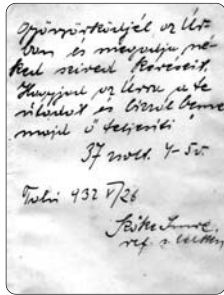 Gyönyörködjél az Úr-
ban és megadja né-
ked szíved kéréseit.
Hagyjad az Úrra a te
útadat és bízzál benne
majd ő teljesíti
37 zsolt. 4-5v.
932 V/26
Szőke Imre
ref.